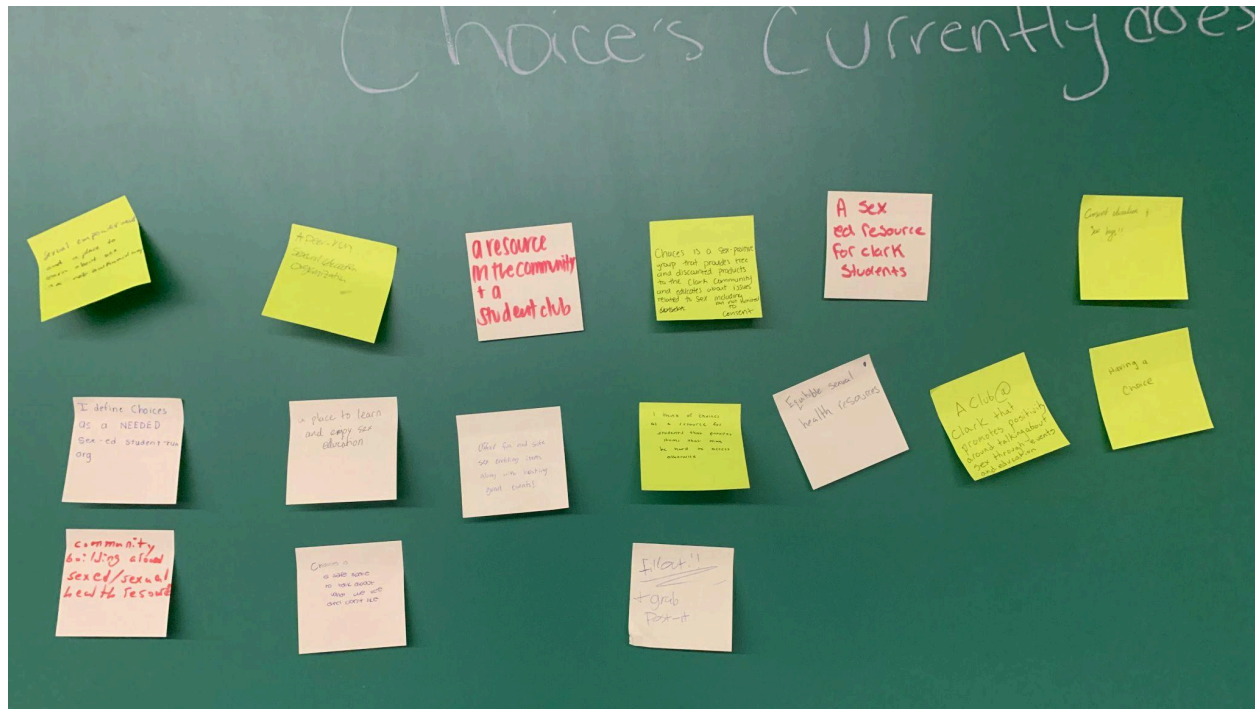 Choice's Currently does
Sexual empowerment
and a place to
learn about sex
A Peer-Run
Sexual education
Organization
a resource
in the community
+ a
student club
Choices is a sex-positive
group that provides free
and discounted products
to the Clark Community
and educates about issues
related to sex including
but not limited
to
consent
A sex
ed resource
for clark
students
Consent education &
I define Choices
as a NEEDED
sex-ed student-run
org
a place to learn
and enjoy sex
education
good events!
I think of choices
as a resource for
students that provides
things that may
be hard to access
otherwise
Equitable sexual
health resources
A Club @
Clark that
promotes positivity
around talking about
sex through events
and education
Having a
choice
community
building around
sexed/sexual
health resource
Choices is
a safe space
to talk about
what we like
and don't like
Fillout!!
+ grab
Post-it